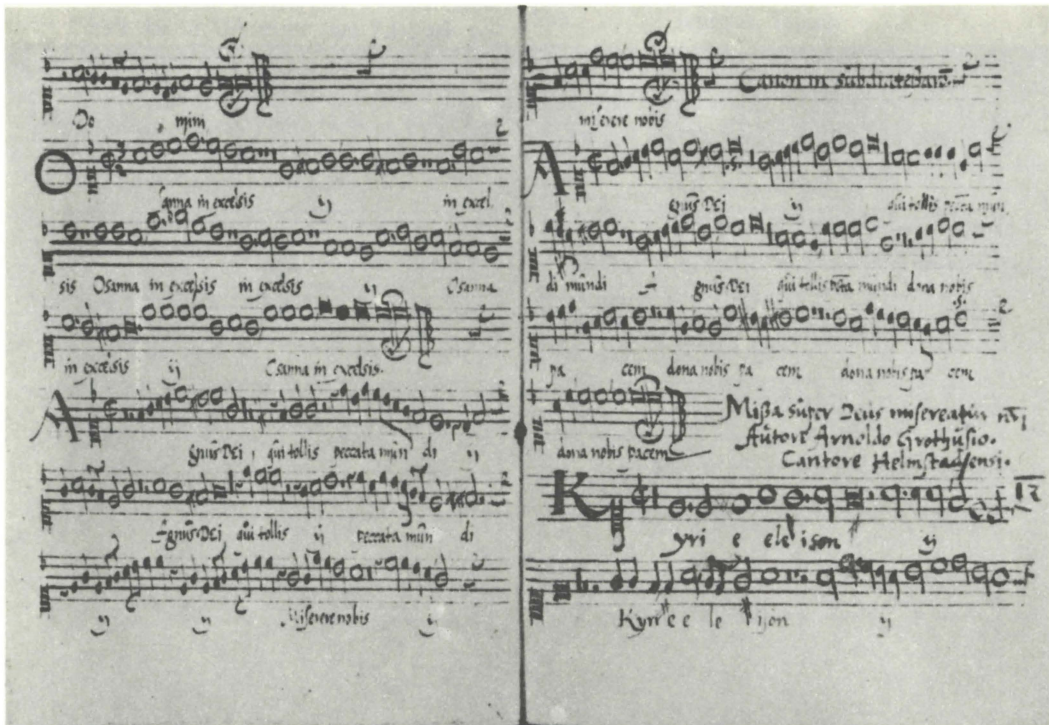 Do mini
Osanna in excelsis ij in excel
sis Osanna in excelsis in excelsis ij Osanna
in excelsis ij Osanna in excelsis.
Agnus Dei qui tollis peccata mun di ij
Agnus Dei qui tollis ij peccata mun di
ij ij Miserere nobis ij
Canon in
miserere nobis
Agnus Dei ij qui tollis mun
di mundi Agnus Dei qui tollis mundi dona nobis
pa cem dona nobis pa cem dona nobis pa cem
dona nobis pacem
Missa super Deus misereatur
Autore Arnoldo Grothusio.
Cantore Helmstadensi.
Kyri e eleison ij
Kyri e e le ison ij